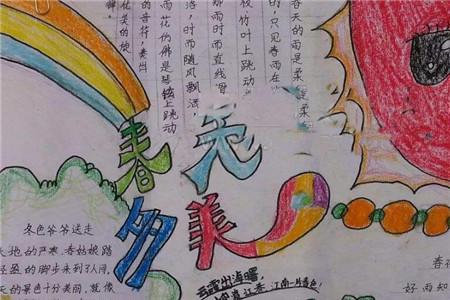 春天的雨是柔柔
的，只见春雨在
枝竹叶上跳动
那雨时而直线滑
落，时而随风飘洒，
雨花仿佛是琴弦上跳动
的音符，奏出
优美的旋
春天
多美
冬色爷爷送走
大地的严寒，春姑娘踏
轻盈的脚步来到了人间，
天的景色十分美丽，就像
云霞出海曙，
渡江春
春
好雨知